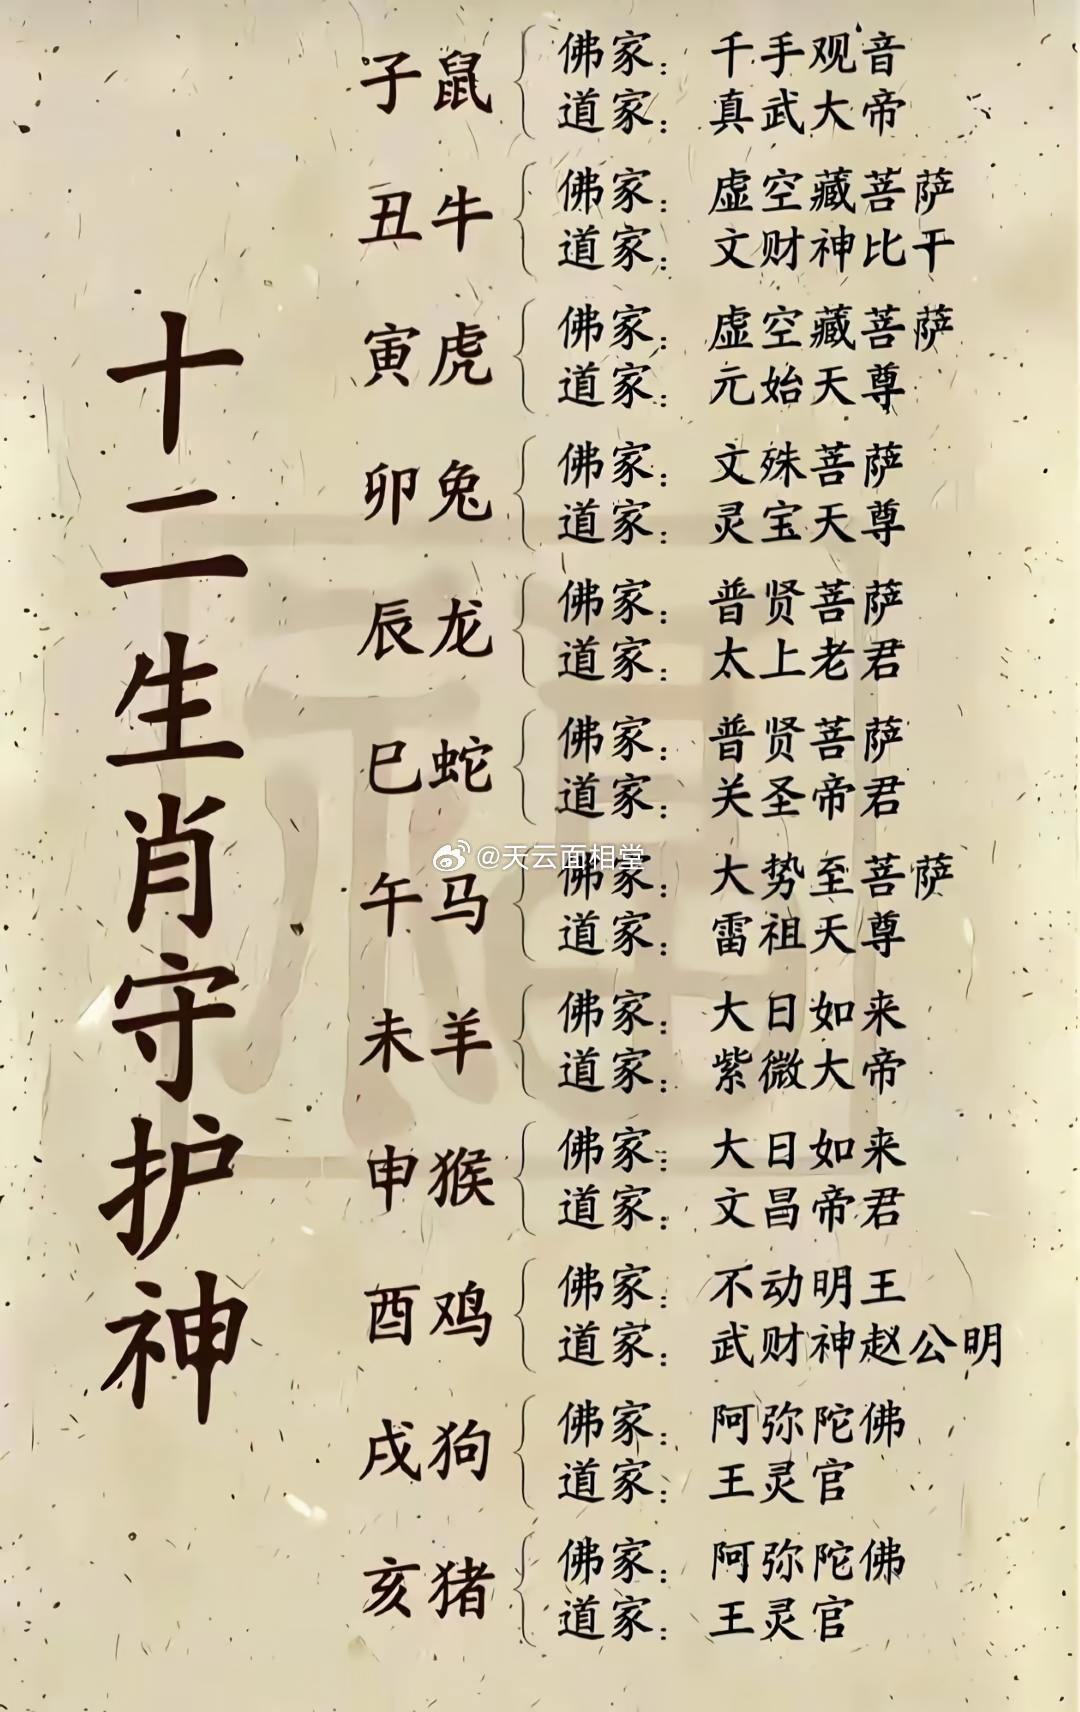 十二生肖守护神
子鼠
佛家：千手观音
道家：真武大帝
丑牛
佛家：虚空藏菩萨
道家：文财神比干
寅虎
佛家：虚空藏菩萨
道家：元始天尊
卯兔
佛家：文殊菩萨
道家：灵宝天尊
辰龙
佛家：普贤菩萨
道家：太上老君
巳蛇
佛家：普贤菩萨
道家：关圣帝君
@天云面相堂
午马
佛家：大势至菩萨
道家：雷祖天尊
未羊
佛家：大日如来
道家：紫微大帝
申猴
佛家：大日如来
道家：文昌帝君
酉鸡
佛家：不动明王
道家：武财神赵公明
戌狗
佛家：阿弥陀佛
道家：王灵官
亥猪
佛家：阿弥陀佛
道家：王灵官